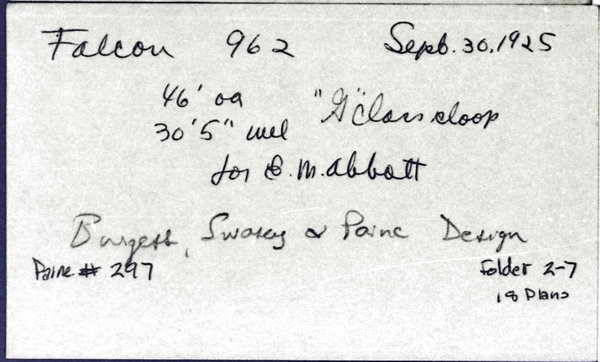 Falcon 962 Sept. 30, 1925
46' oa "G" Class sloop
30' 5" wl
for E. M. Abbott
Burgess, Swasey & Paine Design
Paine # 297 Folder 2-7
18 Plans